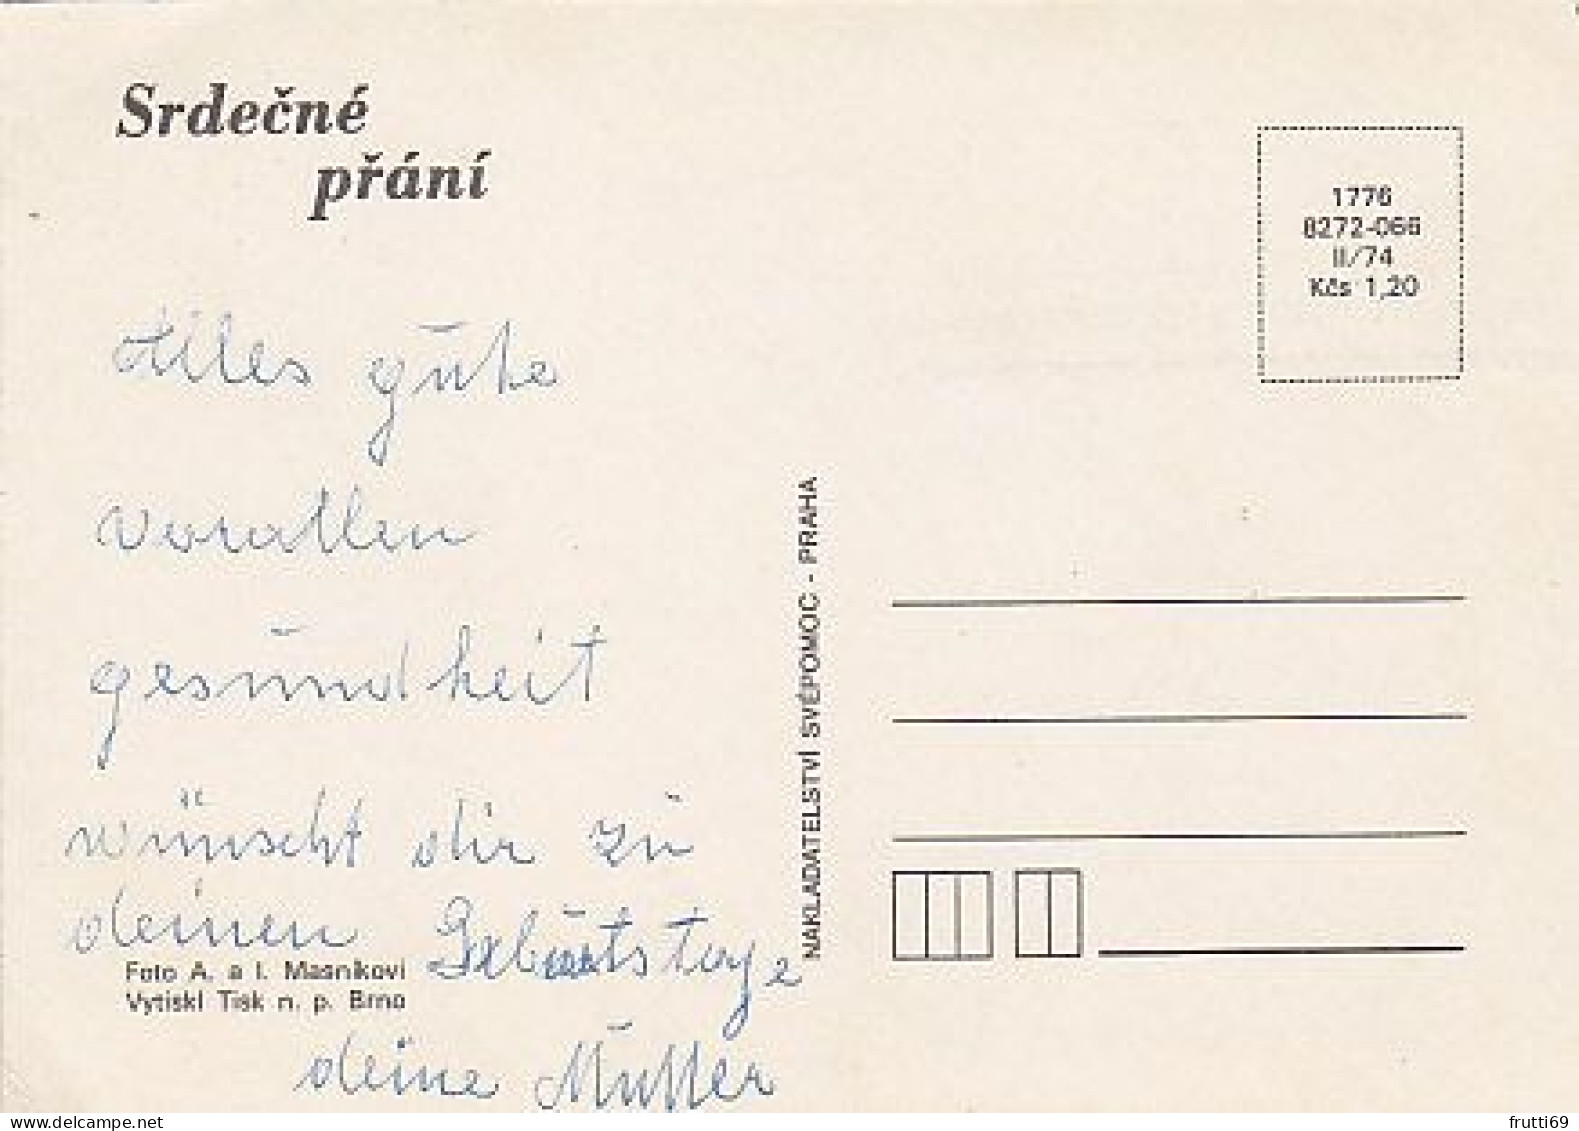 Srdečné
přání
1776
8272-066
II/74
Kčs 1,20
Alles gute
vorallen
gesundheit
wünscht dir zu
deinen Geburtstage
deine Mutter
Foto A. a I. Masníkovi
Vytiskl Tisk n. p. Brno
NAKLADATELSTVÍ SVÉPOMOC - PRAHA
frutti69